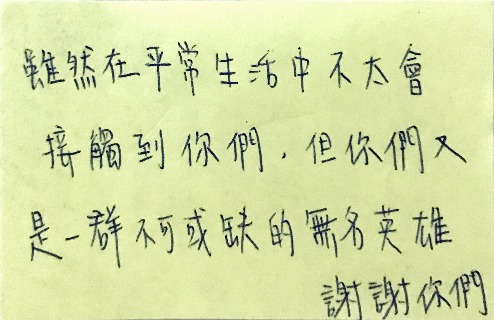 雖然在平常生活中不太會
接觸到你們，但你們又
是一群不可或缺的無名英雄
謝謝你們